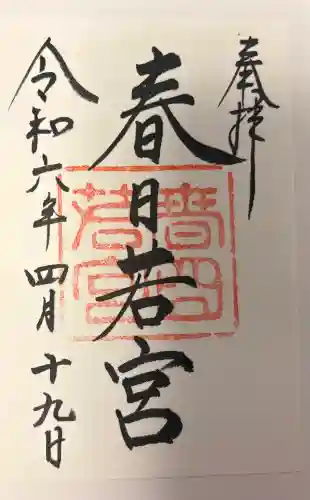 奉拝
春日若宮
春日
若宮
令和六年四月十九日